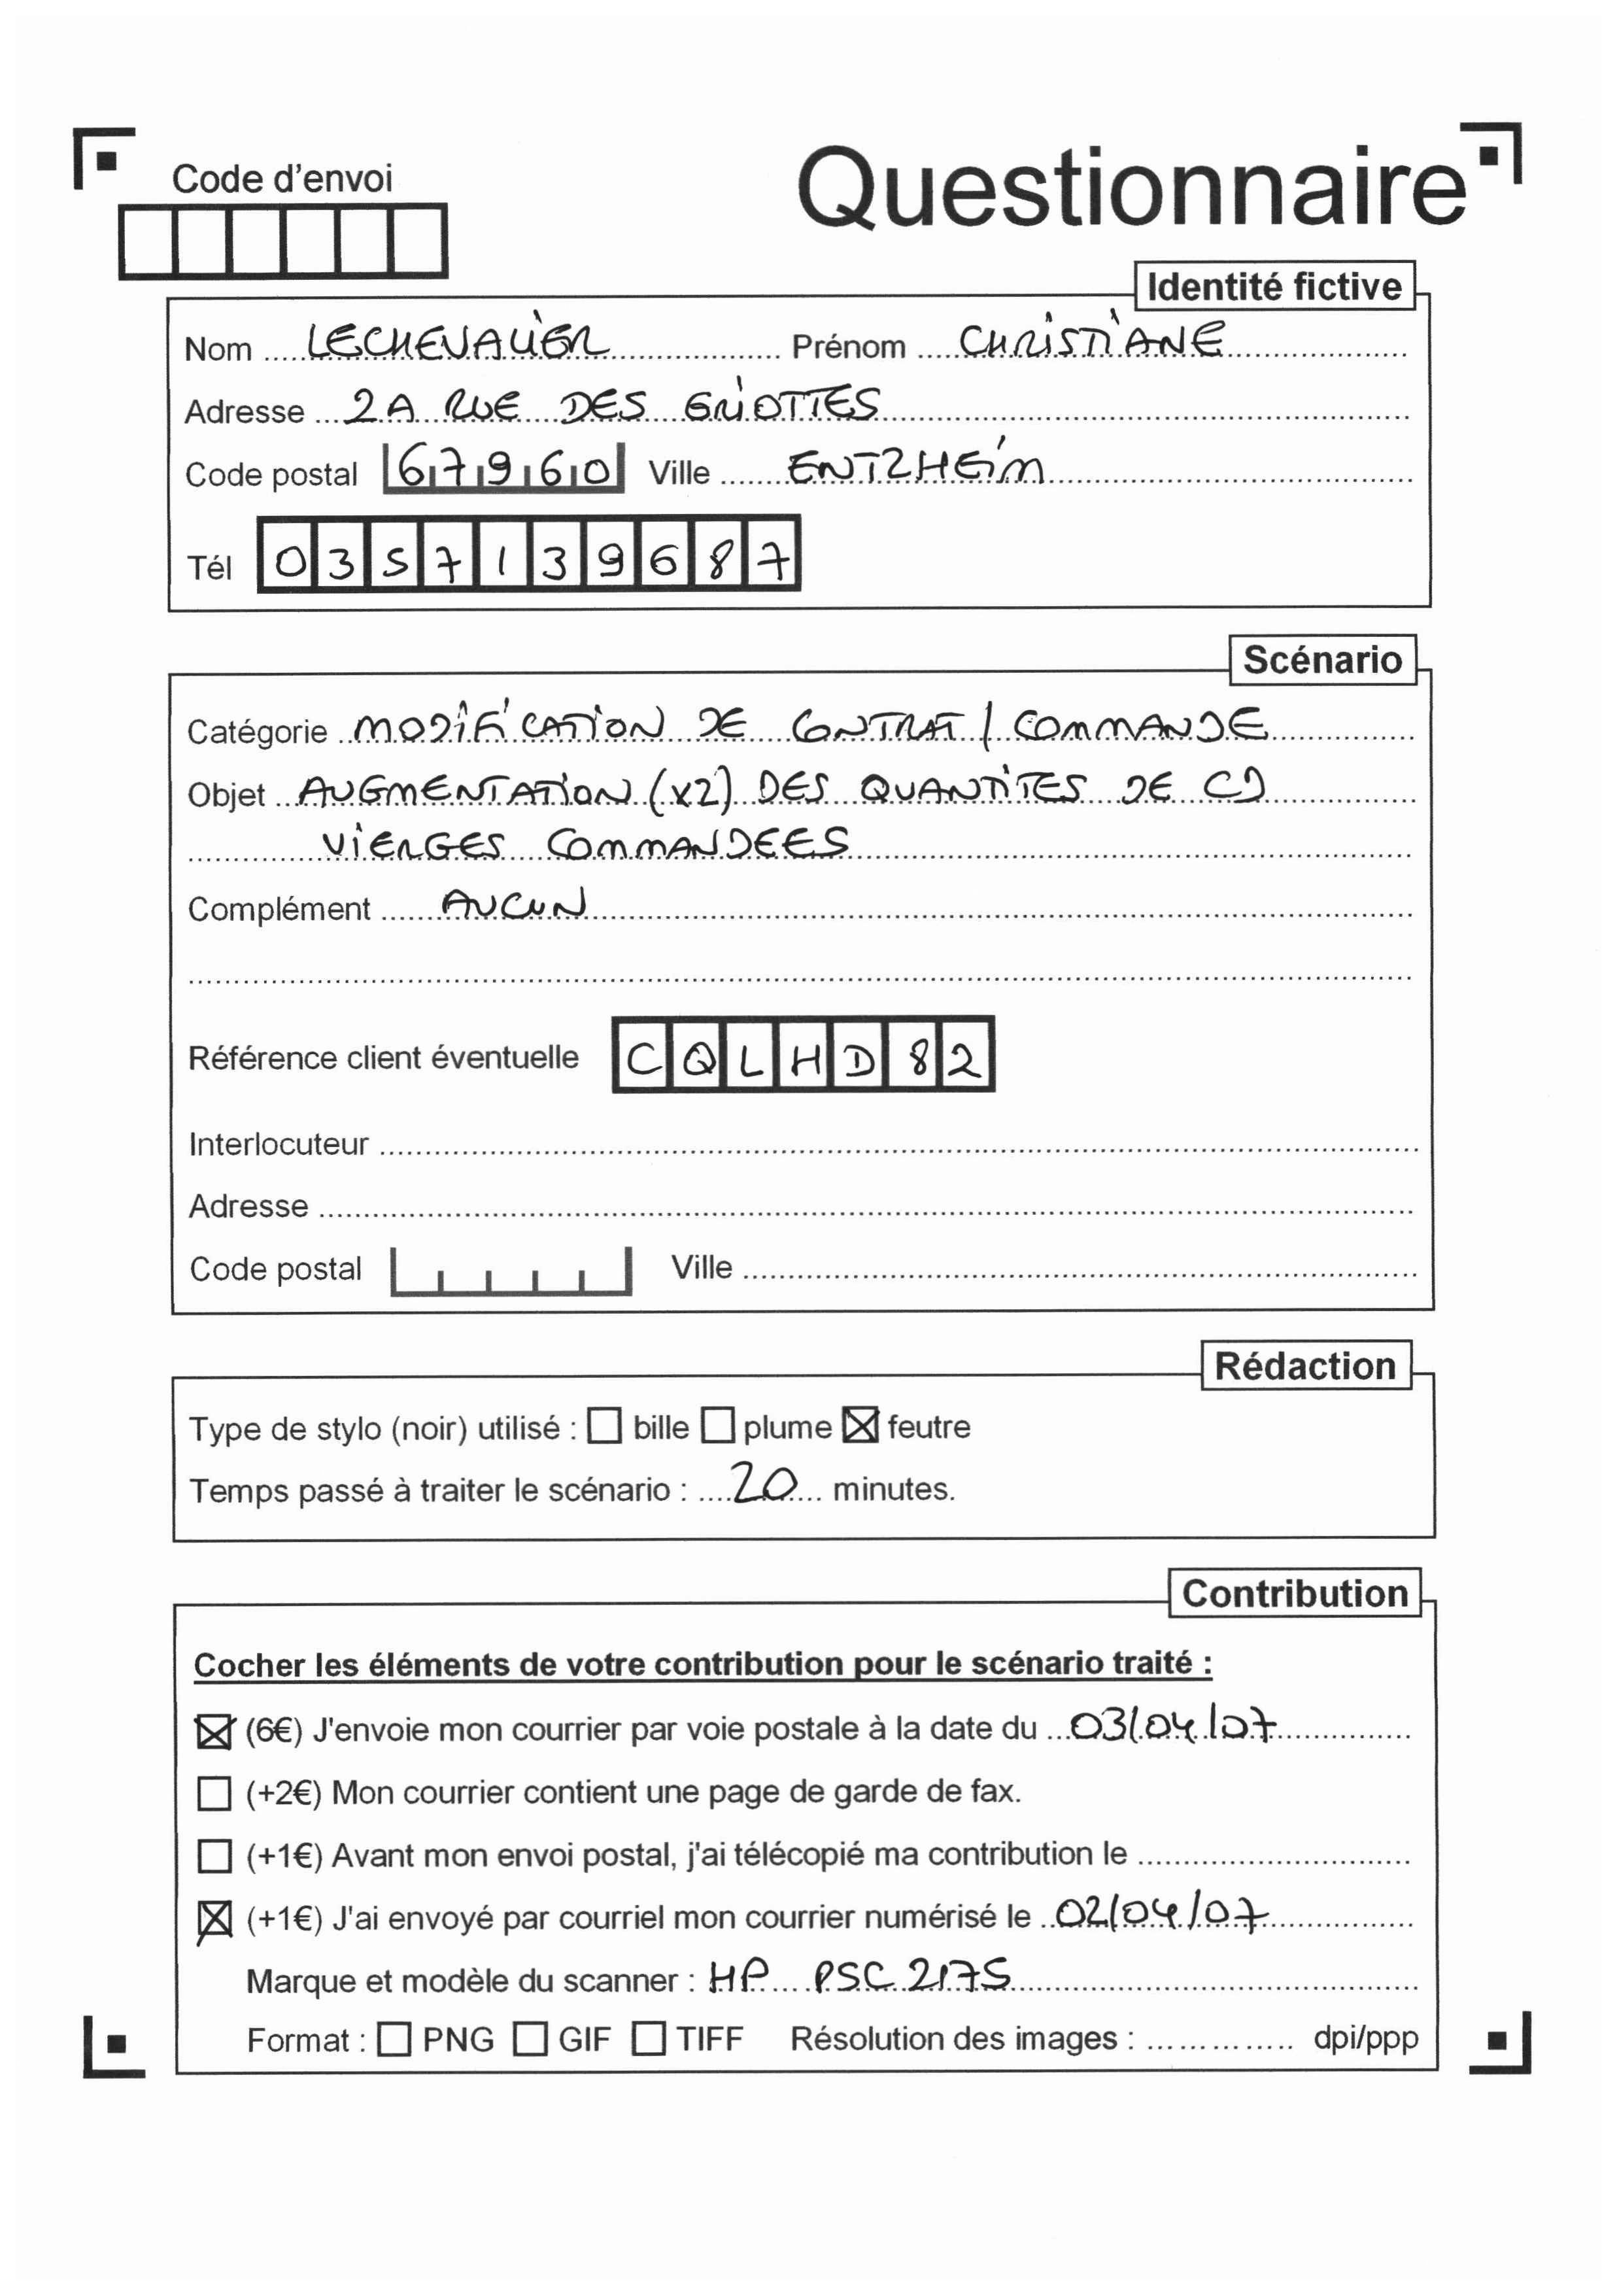 Code d'envoi
Questionnaire
Identité fictive
Nom LECHEVALIER Prénom CHRISTIANE
Adresse 2A RUE DES GRIOTTES
Code postal 67960 Ville ENTZHEIM
Tél 0357139687
Scénario
Catégorie MODIFICATION DE CONTRAT / COMMANDE
Objet AUGMENTATION (X2) DES QUANTITES DE CD
VIERGES COMMANDEES
Complément AUCUN
Référence client éventuelle CQLHD82
Interlocuteur
Adresse
Code postal Ville
Rédaction
Type de stylo (noir) utilisé : bille plume feutre
Temps passé à traiter le scénario : 20 minutes.
Contribution
Cocher les éléments de votre contribution pour le scénario traité :
(6€) J'envoie mon courrier par voie postale à la date du 03/04/07
(+2€) Mon courrier contient une page de garde de fax.
(+1€) Avant mon envoi postal, j'ai télécopié ma contribution le
(+1€) J'ai envoyé par courriel mon courrier numérisé le 02/04/07
Marque et modèle du scanner : HP PSC 2175
Format : PNG GIF TIFF Résolution des images : dpi/ppp